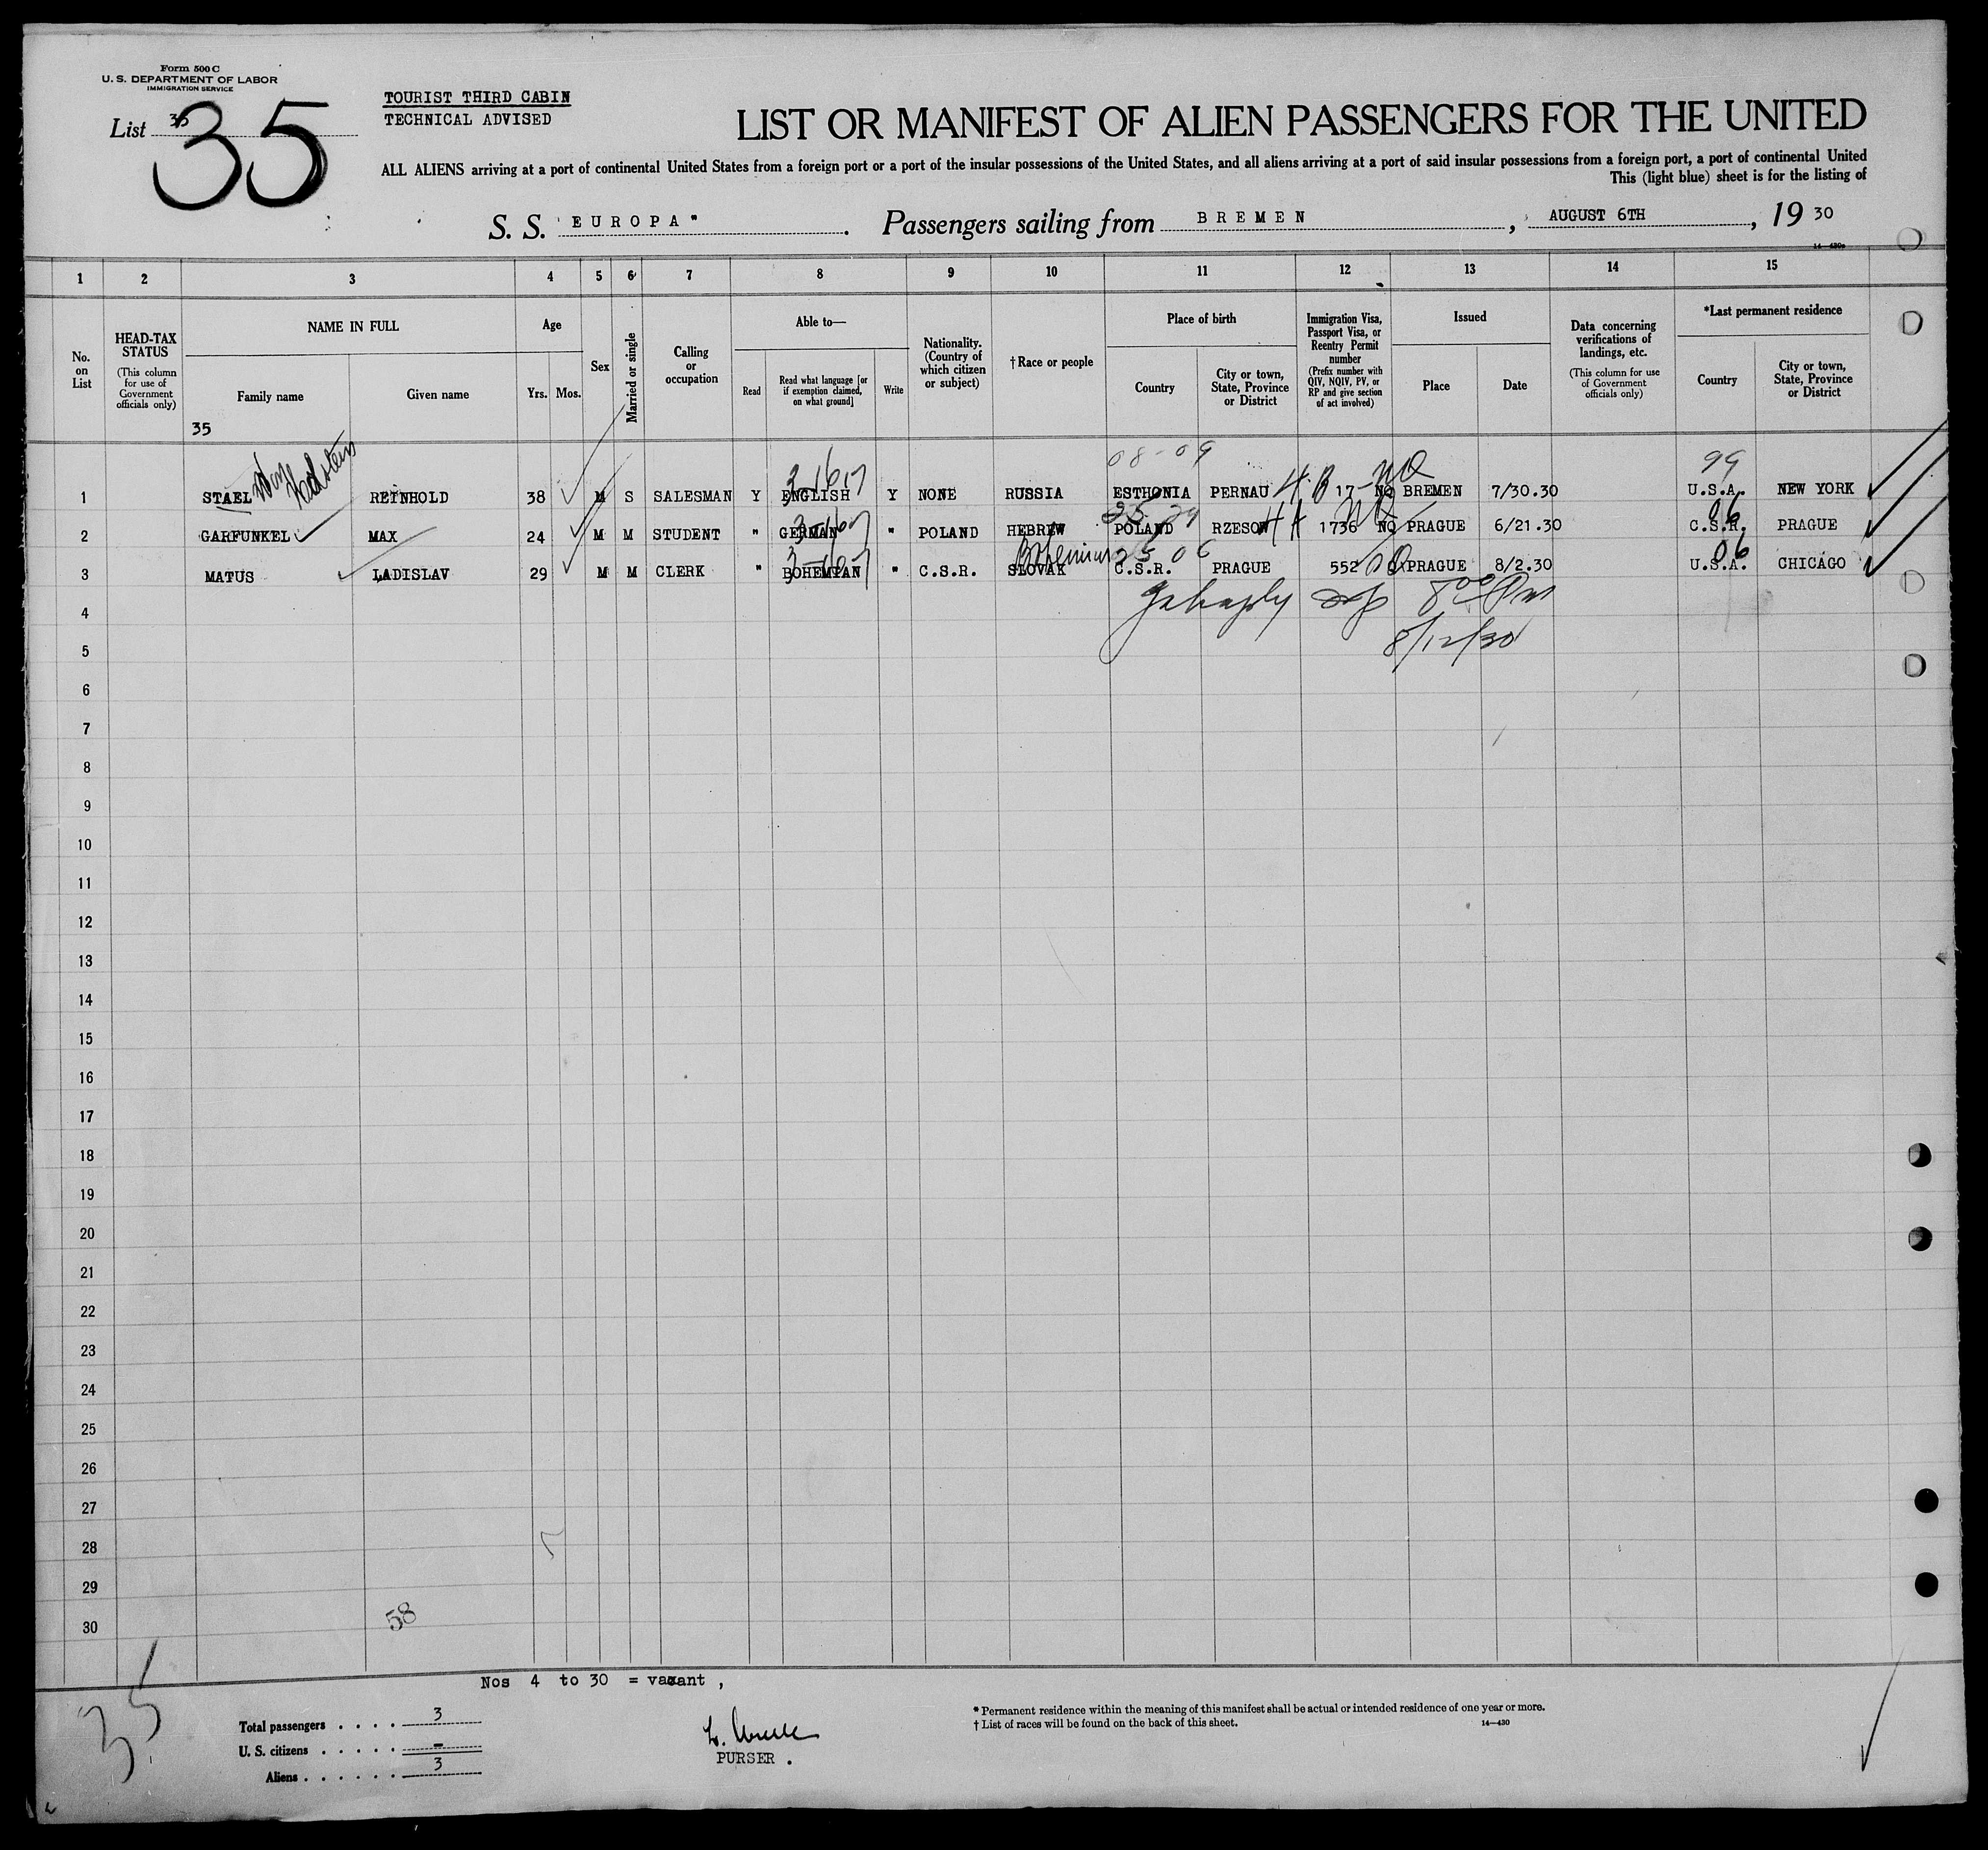 Form 500 C
U. S. DEPARTMENT OF LABOR
IMMIGRATION SERVICE
List 35
35
TOURIST THIRD CABIN
TECHNICAL ADVISED
LIST OR MANIFEST OF ALIEN PASSENGERS FOR THE UNITED
ALL ALIENS arriving at a port of continental United States from a foreign port or a port of the insular possessions of the United States, and all aliens arriving at a port of said insular possessions from a foreign port, a port of continental United
This (light blue) sheet is for the listing of
S. S. "EUROPA". Passengers sailing from BREMEN, AUGUST 6TH, 19 30
14—430a
1 2 3 4 5 6 7 8 9 10 11 12 13 14 15
No. on List
HEAD-TAX STATUS
(This column for use of Government officials only)
NAME IN FULL
Family name
Given name
35
Age
Yrs. Mos.
Sex
Married or single
Calling or occupation
Able to—
Read
Read what language [or if exemption claimed, on what ground]
Write
Nationality. (Country of which citizen or subject)
† Race or people
Place of birth
Country
City or town, State, Province or District
Immigration Visa, Passport Visa, or Reentry Permit number
(Prefix number with QIV, NQIV, PV, or RP and give section of act involved)
Issued
Place
Date
Data concerning verifications of landings, etc.
(This column for use of Government officials only)
*Last permanent residence
Country
City or town, State, Province or District
08-09 99
1 STAEL REINHOLD 38 M S SALESMAN Y ENGLISH Y NONE RUSSIA ESTHONIA PERNAU 17 NQ BREMEN 7/30.30 U.S.A. NEW YORK
06
2 GARFUNKEL MAX 24 M M STUDENT " GERMAN " POLAND HEBREW POLAND RZESOW 1736 NQ PRAGUE 6/21.30 C.S.R. PRAGUE
Bohemian 06
3 MATUS LADISLAV 29 M M CLERK " BOHEMIAN " C.S.R. SLOVAK C.S.R. PRAGUE 552 PRAGUE 8/2.30 U.S.A. CHICAGO
4
8/12/30
5
6
7
8
9
10
11
12
13
14
15
16
17
18
19
20
21
22
23
24
25
26
27
28
29
58
30
Nos 4 to 30 = vacant,
35
Total passengers . . . . 3
U. S. citizens . . . . . -
Aliens . . . . . . 3
PURSER.
* Permanent residence within the meaning of this manifest shall be actual or intended residence of one year or more.
† List of races will be found on the back of this sheet.
14—430